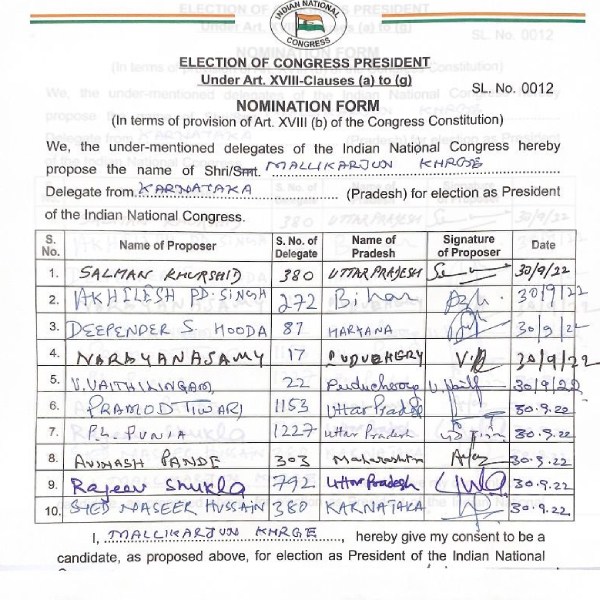 INDIAN NATIONAL
CONGRESS
ELECTION OF CONGRESS PRESIDENT
Under Art. XVIII-Clauses (a) to (g)
SL. No. 0012
NOMINATION FORM
(In terms of provision of Art. XVIII (b) of the Congress Constitution)
We, the under-mentioned delegates of the Indian National Congress hereby
propose the name of Shri/Smt. MALLIKARJUN KHRGE
Delegate from KARNATAKA (Pradesh) for election as President
of the Indian National Congress.
S. No. Name of Proposer S. No. of Delegate Name of Pradesh Signature of Proposer Date
1. SALMAN KHURSHID 380 UTTAR PRADESH 30/9/22
2. AKHILESH PD. SINGH 272 Bihar 30/9/22
3. DEEPENDER S. HOODA 87 HARYANA 30/9/22
4. NARAYANASAMY 17 PUDUCHERRY 30/9/22
5. V. VAITHILINGAM 22 Puducherry 30/9/22
6. PRAMOD TIWARI 1153 Uttar Pradesh 30.9.22
7. P.L. PUNIA 1227 Uttar Pradesh 30.9.22
8. AVINASH PANDE 303 Maharashtra 30.9.22
9. Rajeev Shukla 792 Uttar Pradesh 30.9.22
10. SYED NASEER HUSSAIN 380 KARNATAKA 30.9.22
I, MALLIKARJUN KHRGE, hereby give my consent to be a
candidate, as proposed above, for election as President of the Indian National